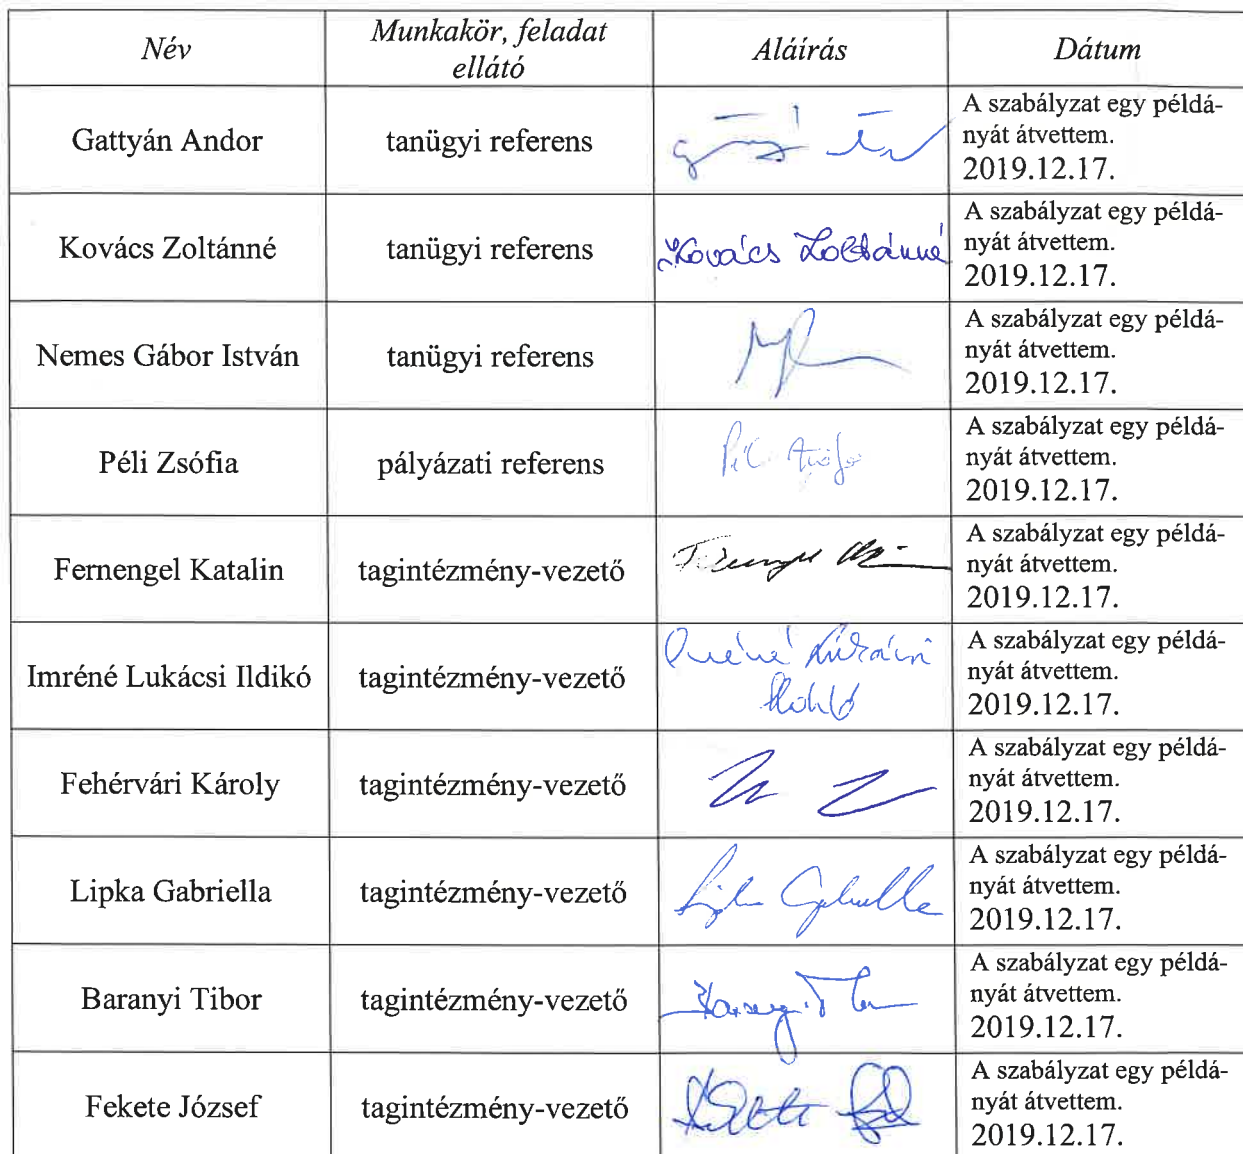 Név
Munkakör, feladat
ellátó
Aláírás
Dátum
Gattyán Andor
tanügyi referens
A szabályzat egy példá-
nyát átvettem.
2019.12.17.
Kovács Zoltánné
tanügyi referens
Kovács Zoltánné
A szabályzat egy példá-
nyát átvettem.
2019.12.17.
Nemes Gábor István
tanügyi referens
A szabályzat egy példá-
nyát átvettem.
2019.12.17.
Péli Zsófia
pályázati referens
A szabályzat egy példá-
nyát átvettem.
2019.12.17.
Fernengel Katalin
tagintézmény-vezető
A szabályzat egy példá-
nyát átvettem.
2019.12.17.
Imréné Lukácsi Ildikó
tagintézmény-vezető
Imréné Lukácsi
Ildikó
A szabályzat egy példá-
nyát átvettem.
2019.12.17.
Fehérvári Károly
tagintézmény-vezető
A szabályzat egy példá-
nyát átvettem.
2019.12.17.
Lipka Gabriella
tagintézmény-vezető
Lipka Gabriella
A szabályzat egy példá-
nyát átvettem.
2019.12.17.
Baranyi Tibor
tagintézmény-vezető
A szabályzat egy példá-
nyát átvettem.
2019.12.17.
Fekete József
tagintézmény-vezető
A szabályzat egy példá-
nyát átvettem.
2019.12.17.